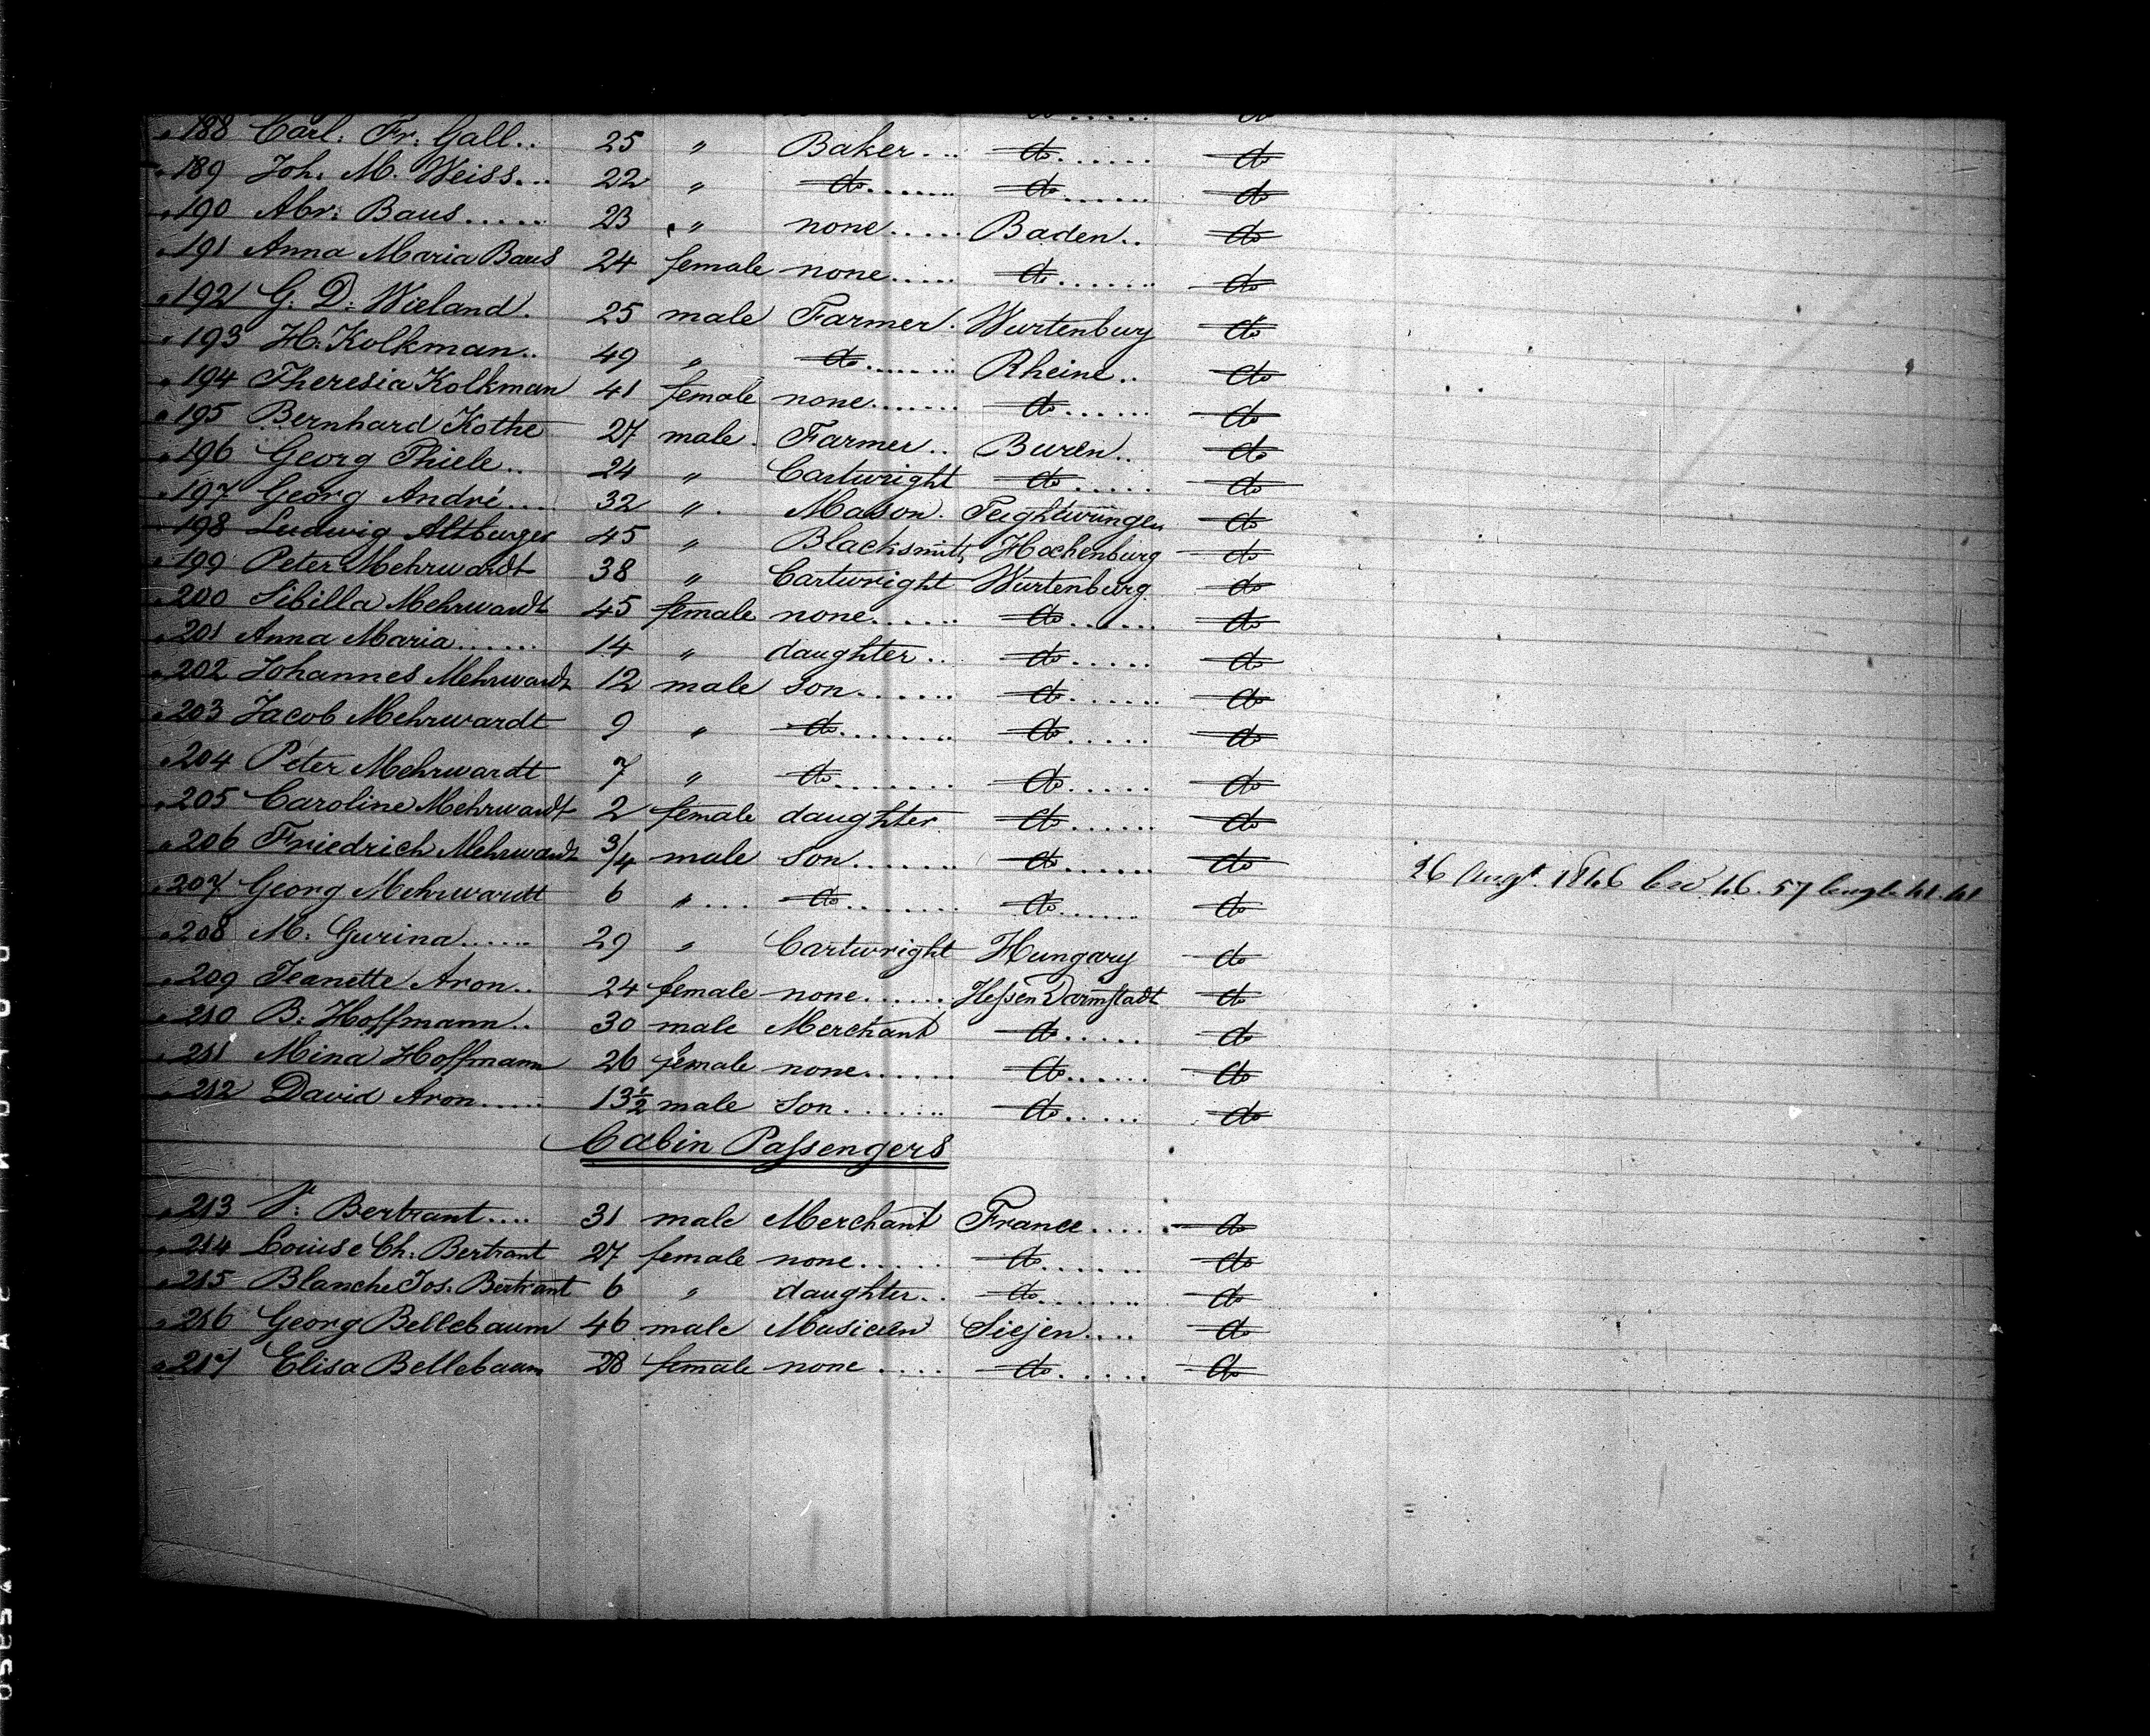 do...... do
188 Carl. Fr. Gall.. 25 " Baker... do....... do
189 Joh. M. Weiss... 22 " do....... do...... do
190 Abr: Baus...... 23 " none..... Baden.. do
191 Anna Maria Baus 24 female none..... do....... do
192 G. D. Wieland. 25 male Farmer. Wurtenburg do
193 H. Kolkman.. 49 " do....... Rheine.. do
194 Theresia Kolkman 41 female none....... do...... do
195 Bernhard Kothe 27 male. Farmer.. Buren.. do
196 Georg Thiele.. 24 " Cartwright do...... do
197 Georg André.... 32 " Mason. do
198 Ludwig Altburger 45 " Blacksmith Hachenburg do
199 Peter Mehrwardt 38 " Cartwright Wurtenburg. do
200 Sibilla Mehrwardt 45 female none...... do...... do
201 Anna Maria...... 14 " daughter.. do...... do
202 Johannes Mehrwardt 12 male son...... do....... do
203 Jacob Mehrwardt 9 " do........ do...... do
204 Peter Mehrwardt 7 " do........ do...... do
205 Caroline Mehrwardt 2 female daughter do...... do
206 Friedrich Mehrwardt 3/4 male son....... do...... do
26 Augt. 1846 46.57 41.41
207 Georg Mehrwardt 6 ".... do........ do...... do
208 M. Gurina...... 29 " Cartwright Hungary do
209 Jeanette Aron.. 24 female none...... Hessen Darmstadt do
210 B. Hoffmann.. 30 male Merchant do..... do
211 Mina Hoffmann 26 female none...... do...... do
212 David Aron..... 13½ male Son....... do...... do
Cabin Passengers
213 V. Bertrant.... 31 male Merchant France.... do
214 Louise Ch. Bertrant 27 female none..... do...... do
215 Blanche Jos. Bertrant 6 " daughter.. do....... do
216 Georg Bellebaum 46 male Musicien Siejen.... do
217 Elisa Bellebaum 28 female none..... do...... do